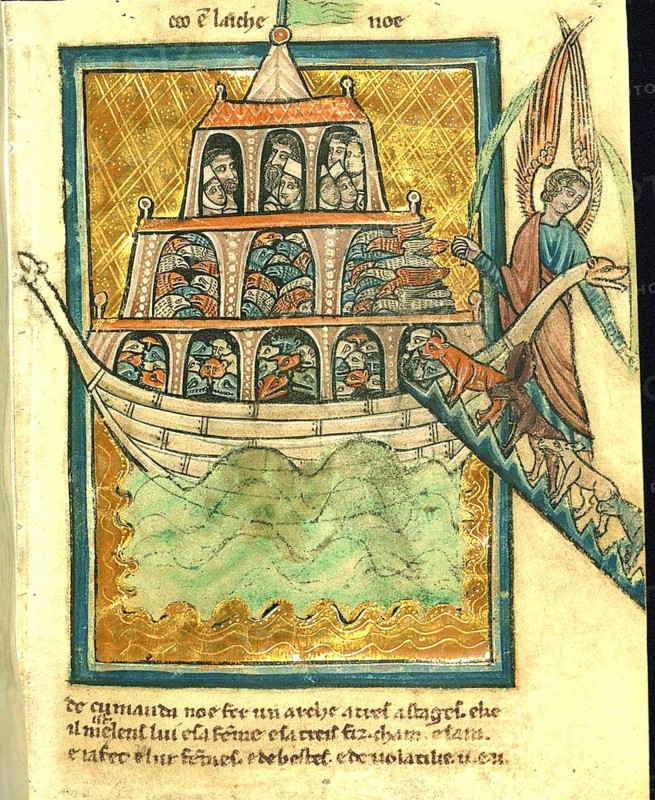 ceo est larche noe
de cumanda noe fer un arche a treis astages. e ke
il meiens lui e sa feme e sa treis fiz. cham. e sem.
e iafet e lur femes. e de bestes. e de volatilie. u. eu.